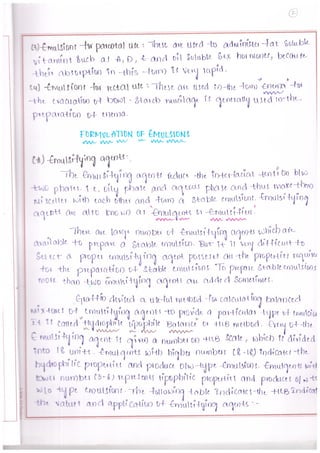 Emulsions for parental use : These are used to administer fat soluble
vitamins such as A, D, E and oil soluble sex hormones, because
their absorption in this form is very rapid.
Emulsions for rectal use : These are used in the form "Enema" for
the evacuation of bowl. Starch mucilage is generally used in the
preparation of enema.
FORMULATION OF EMULSIONS
Emulsifying agents:-
The Emulsifying agents reduce the interfacial tension b/w
two phases i.e. oily phase and aqueous phase and thus make them
miscible with each other and form a stable emulsion. Emulsifying
agents are also known as "Emulgents or Emulsifiers"
There are large number of Emulsifying agents which are
available to prepare a stable emulsion. But it is very difficult to
select a proper emulsifying agent possesses all the properties
for the preparation of stable emulsions. To prepare stable emulsions
more than two emulsifying agents are added sometimes.
Griffin devised a useful method for calculating balanced
mixtures of emulsifying agents to provide a particular type of
It is called Hydrophile Lipophile Balance or HLB method. Every
Emulsifying agent is given a number on HLB scale, which is divided
into 18 units. Emulgents with higher number (8-18) indicates the
hydrophilic properties and produce o/w type Emulsions. Emulgents with
lower number (3-6) represents lipophilic properties and produces
w/o type emulsions. The following table indicates the HLB
the values and application of Emulsifying agents :-